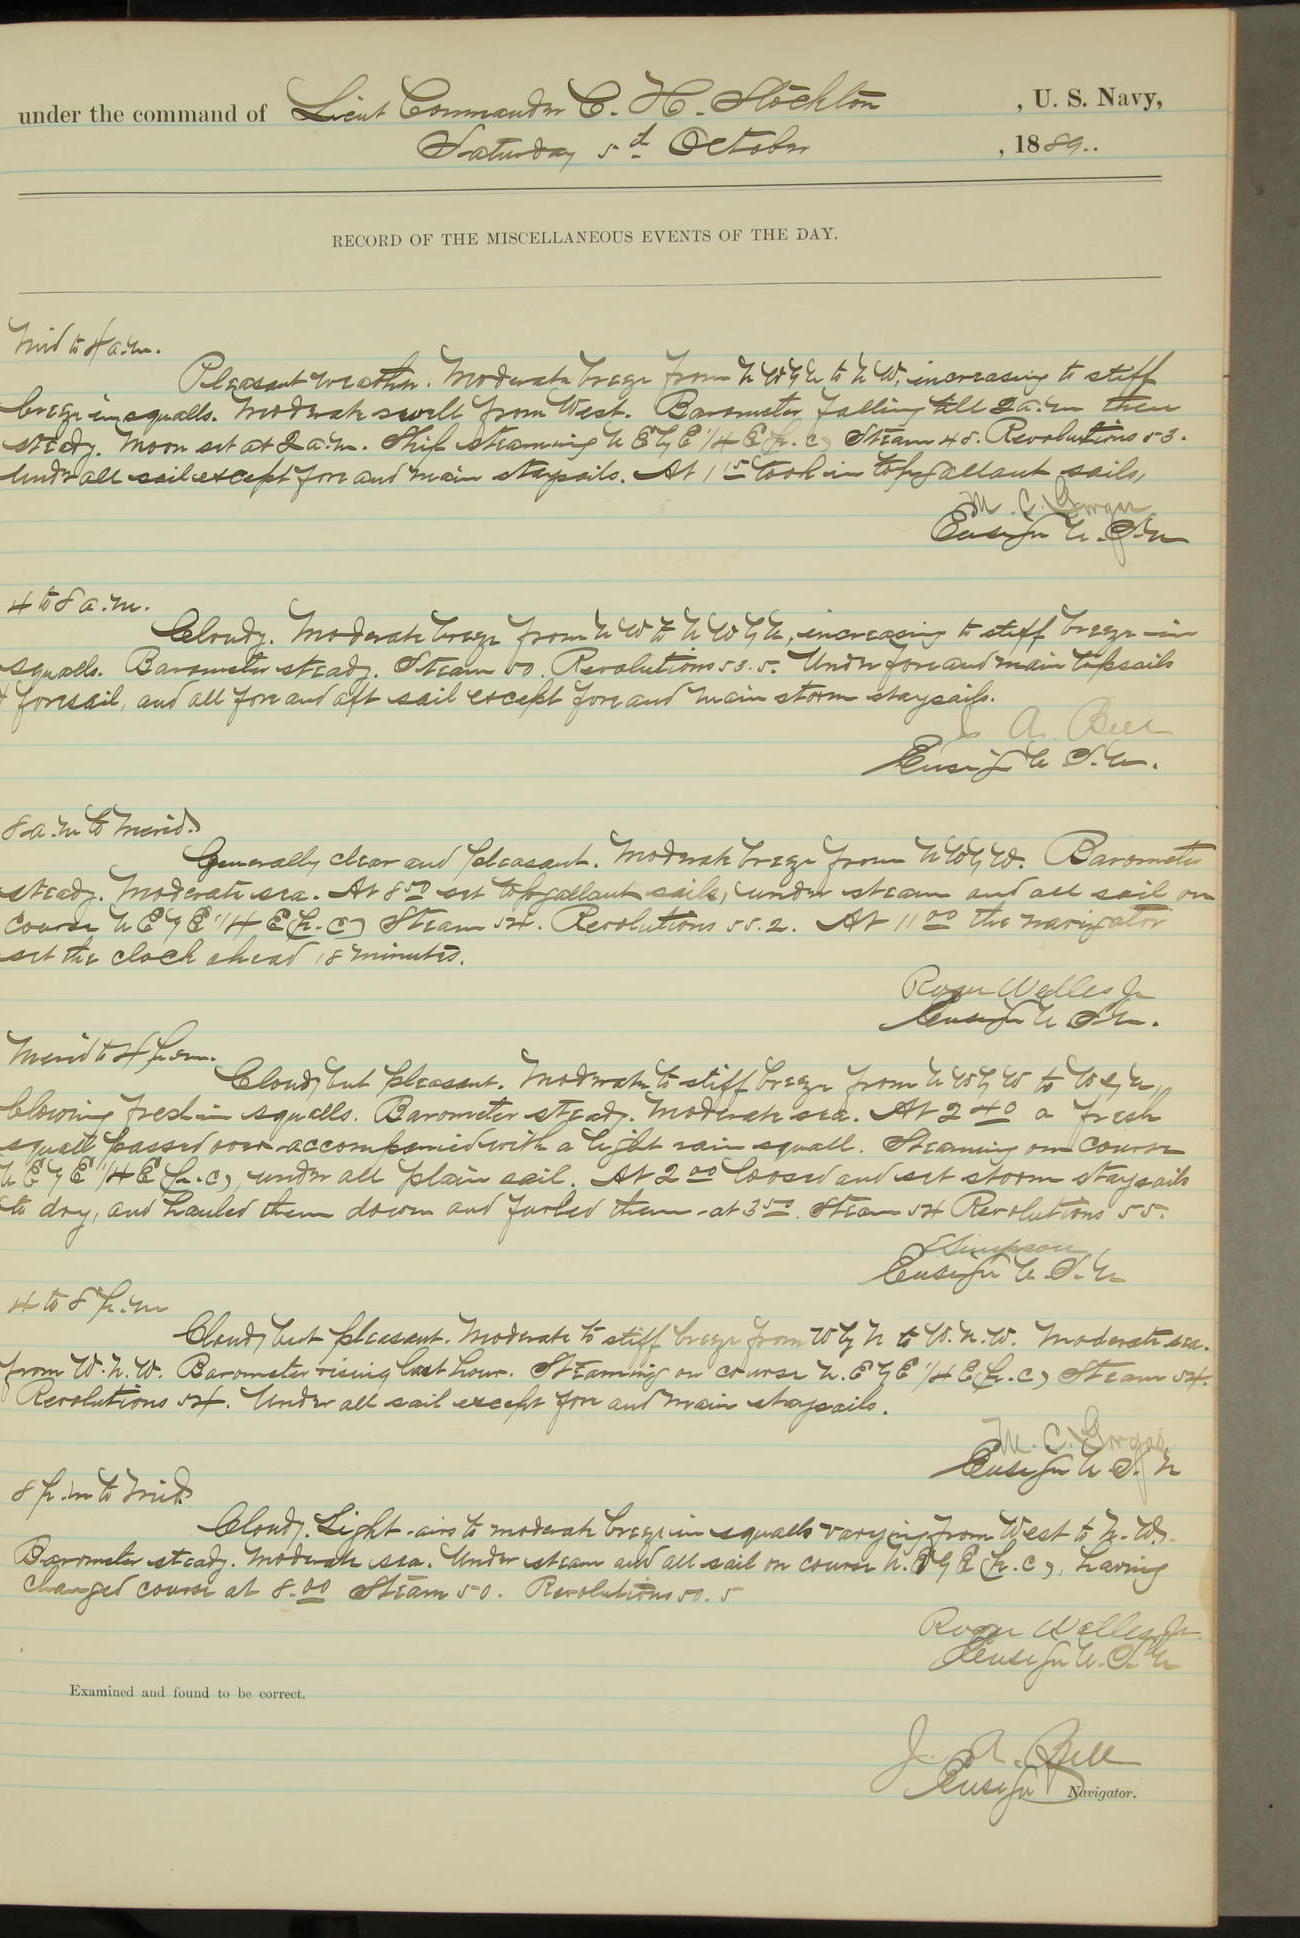 under the command of Lieut Commander C. H. Stockton , U. S. Navy,
Saturday 5th October , 1889..
RECORD OF THE MISCELLANEOUS EVENTS OF THE DAY.
Mid to 4 a.m.
Pleasant weather. Moderate breeze from N W by N to N W, increasing to stiff
breeze in squalls. Moderate swell from West. Barometer falling till 2 a.m then
steady. Moon set at 2 a.m. Ship steaming N E by E 1/4 E (p.c) Steam 48. Revolutions 53.
Under all sail except fore and main staysails. At 1 15 took in topgallant sails,
M. C. Gorgas
Ensign U.S.N
4 to 8 a.m.
Cloudy. Moderate breeze from N W to N W by N, increasing to stiff breeze in
squalls. Barometer steady. Steam 50. Revolutions 53.5. Under fore and main topsails
& foresail, and all fore and aft sail except fore and main storm staysails.
J. A. Bell
Ensign U S.N.
8 a.m to Merid.
Generally clear and pleasant. Moderate breeze from N W by W. Barometer
steady. Moderate sea. At 8 50 set topgallant sails, under steam and all sail on
course N E by E 1/4 E (p.c) Steam 54. Revolutions 55.2. At 11 00 the navigator
set the clock ahead 18 minutes.
Roger Welles Jr
Ensign U S.N.
Merid to 4 p.m.
Cloudy but pleasant. Moderate to stiff breeze from N W by W to W by N,
blowing fresh in squalls. Barometer steady. Moderate sea. At 2 40 a fresh
squall passed over accompanied with a light rain squall. Steaming on course
N E by E 1/4 E (p.c), under all plain sail. At 2 00 loosed and set storm staysails
to dry, and hauled them down and furled them at 3 50. Steam 54 Revolutions 55.
E Simpson
Ensign U.S.N
4 to 8 p.m
Cloudy but pleasant. Moderate to stiff breeze from W by N to W.N.W. Moderate sea.
from W.N.W. Barometer rising last hour. Steaming on course N.E by E 1/4 E (p.c) Steam 54.
Revolutions 54. Under all sail except fore and main staysails.
M. C. Gorgas
Ensign U.S. N
8 p.m to Mid.
Cloudy. Light airs to moderate breeze in squalls varying from West to N.W.
Barometer steady. Moderate sea. Under steam and all sail on course N.E by E (p.c), having
changed course at 8.00 Steam 50. Revolutions 50.5
Roger Welles Jr.
Ensign U.S.N
Examined and found to be correct.
J. A. Bell
Ensign Navigator.